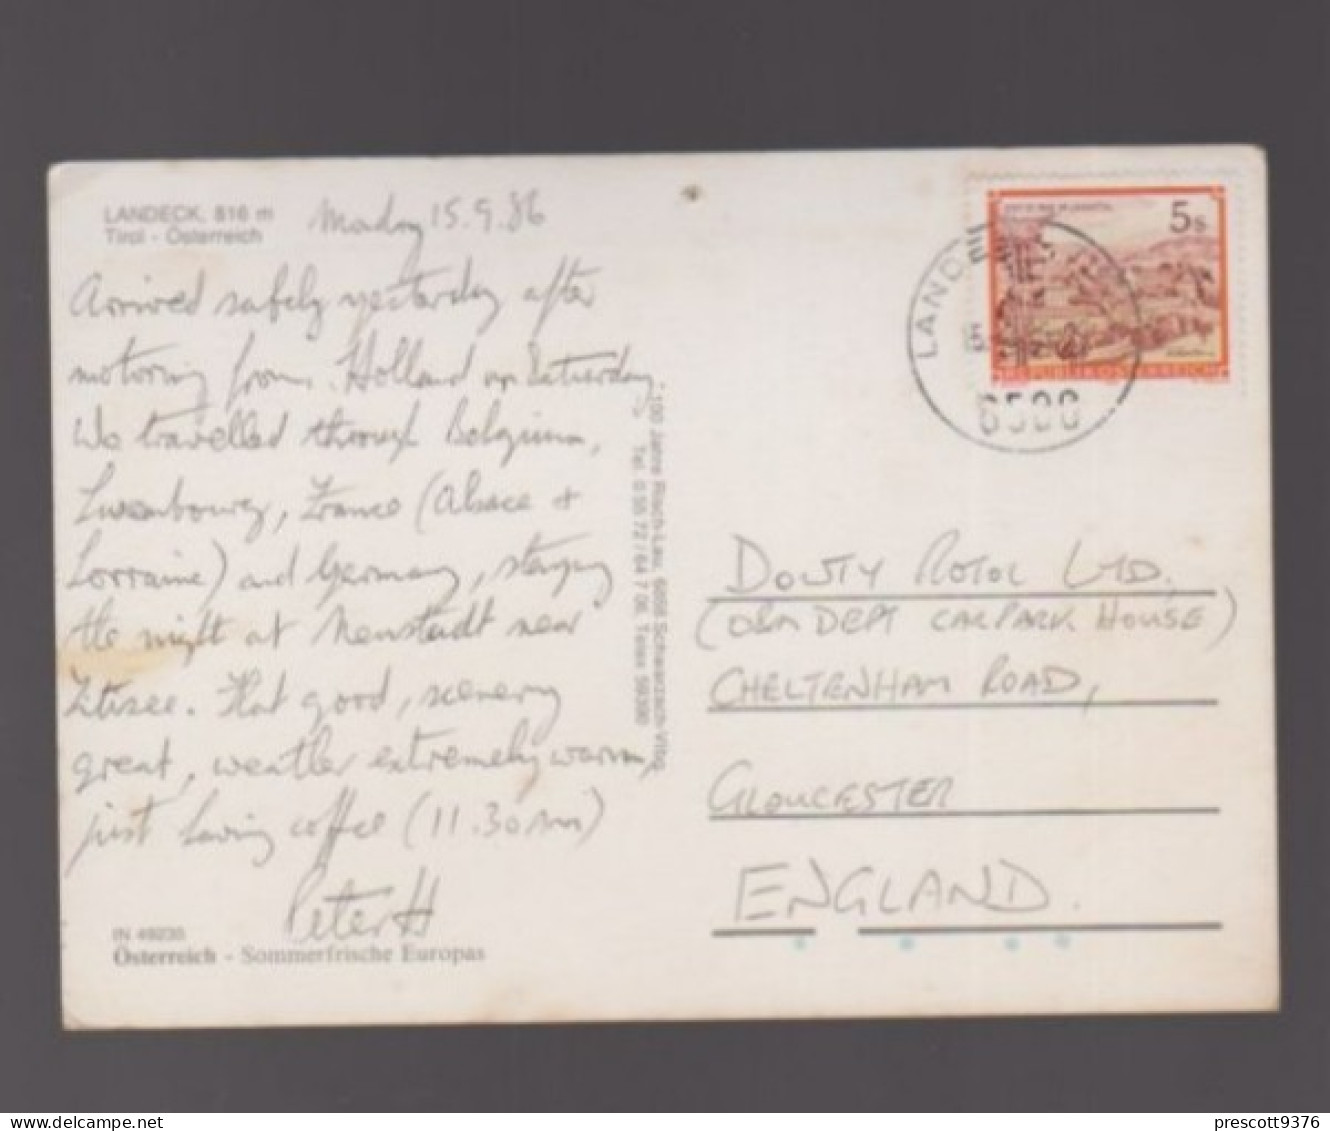 LANDECK, 816 m
Tirol - Österreich
Monday 15.9.86
Arrived safely yesterday after
motoring from Holland on Saturday.
We travelled through Belgium,
Luxembourg, France (Alsace +
Lorraine) and Germany, staying
the night at Neustadt near
Titisee. Flat good, scenery
great, weather extremely warm,
just having coffee (11.30am)
Peter H
IN 49235
Österreich - Sommerfrische Europas
100 Jahre Risch-Lau, 6858 Schwarzach-Vlbg.
Tel. 0 55 72 / 84 7 06, Telex 59330
5s
REPUBLIK ÖSTERREICH
LANDECK
6500
DOWTY ROTOL LTD.
(O&M DEPT CARPARK HOUSE)
CHELTENHAM ROAD,
GLOUCESTER
ENGLAND.
prescott9376